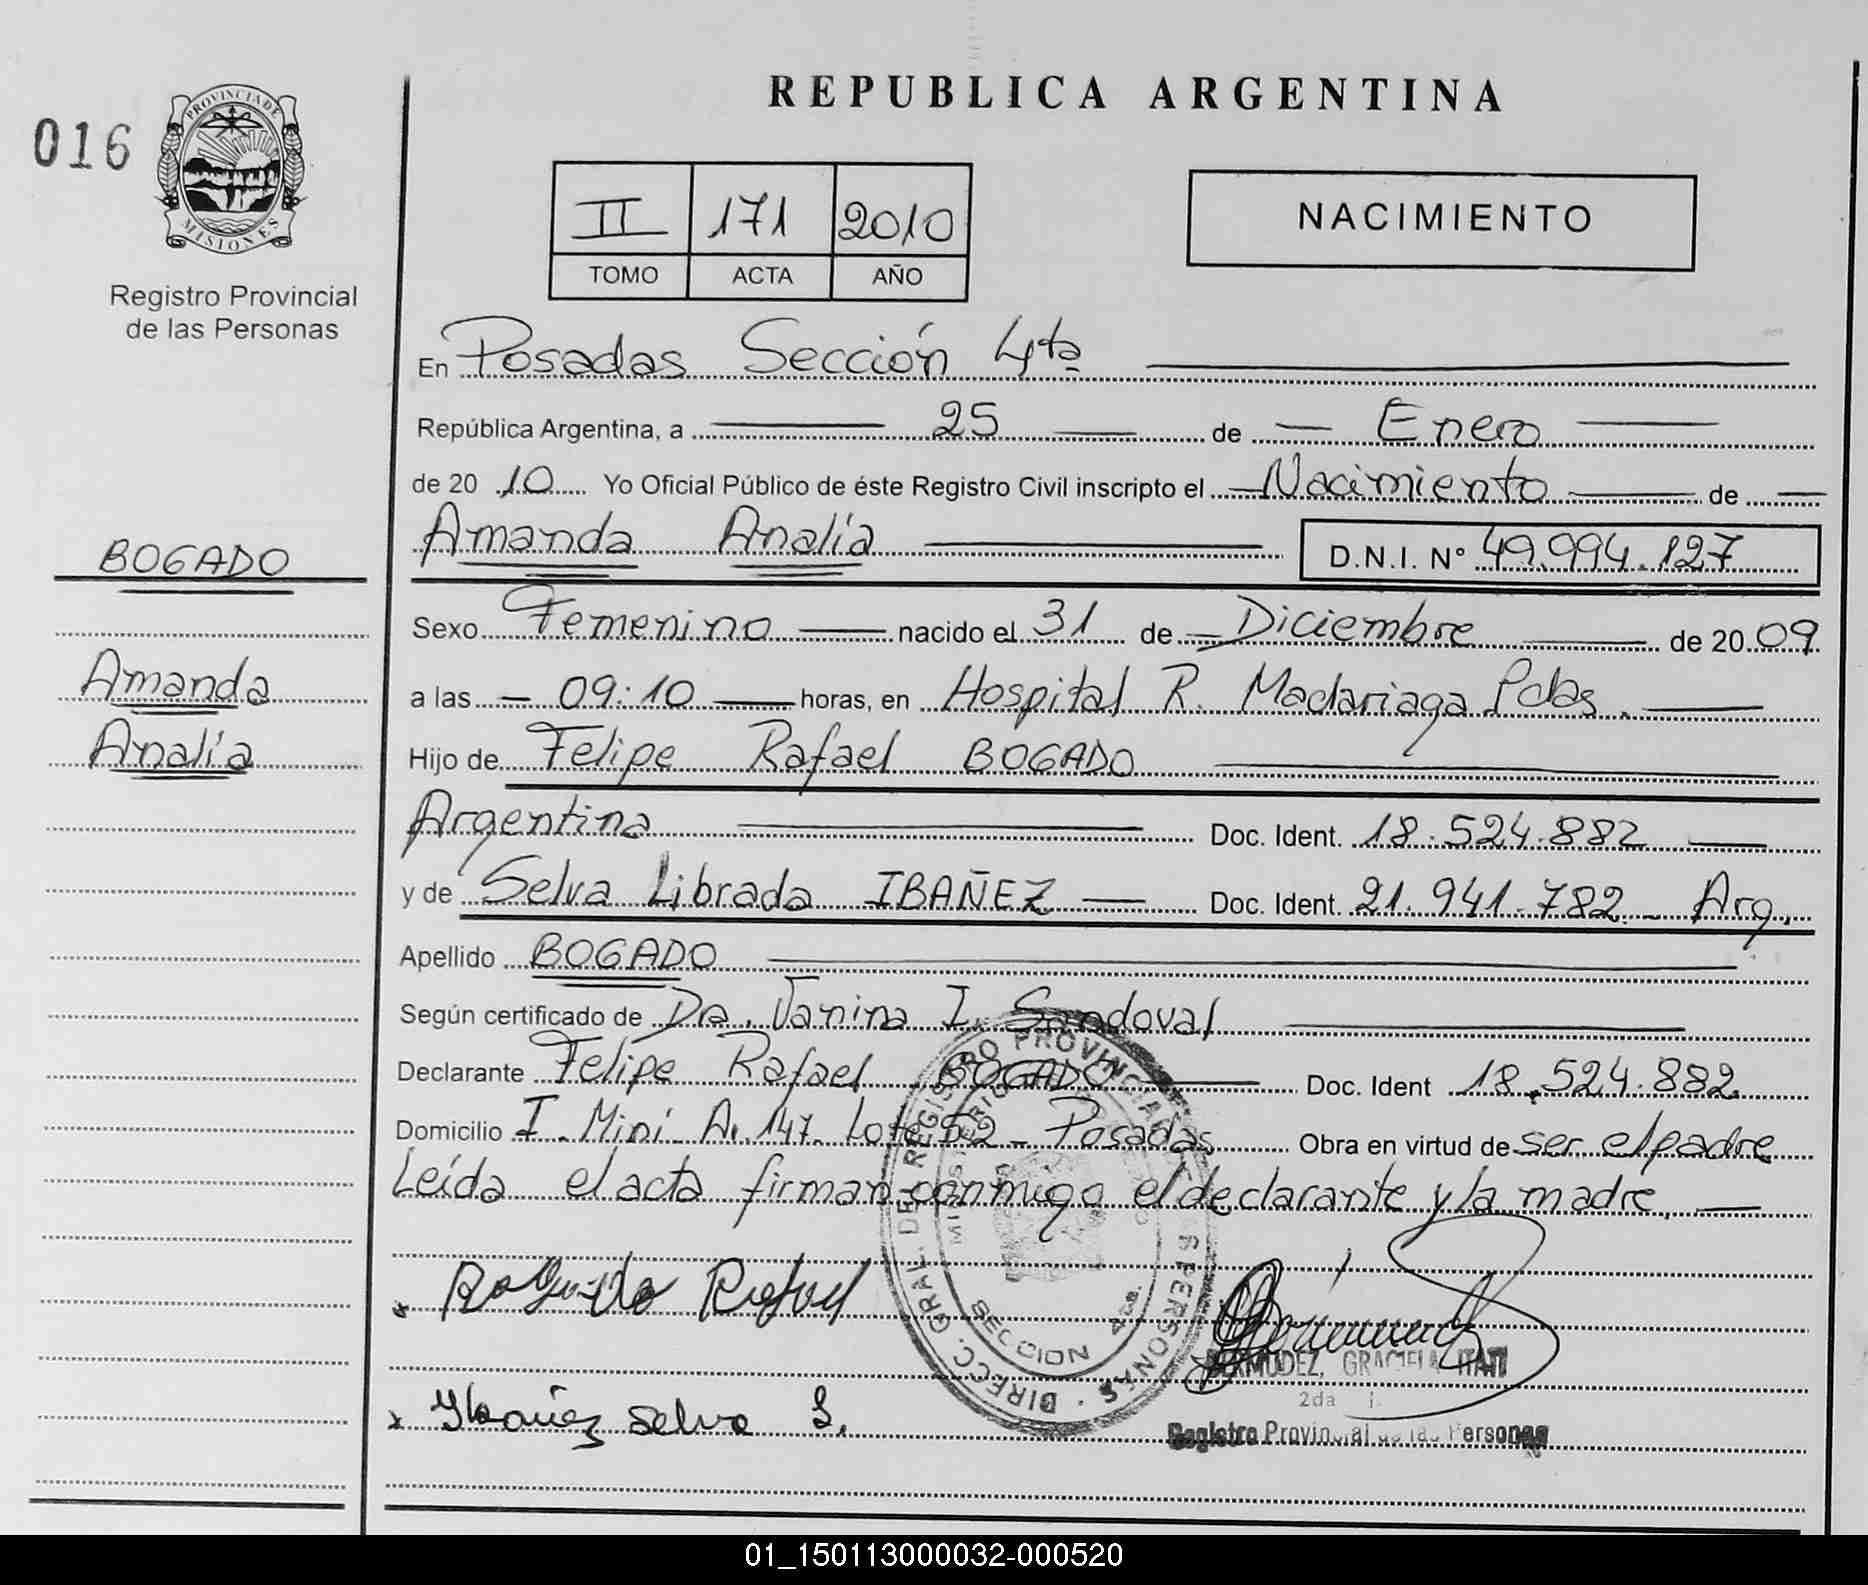 REPUBLICA ARGENTINA
016
PROVINCIA DE
MISIONES
Registro Provincial
de las Personas
II 171 2010
TOMO ACTA AÑO
NACIMIENTO
En Posadas Sección 4ta
República Argentina, a 25 de Enero
de 20 10 Yo Oficial Público de éste Registro Civil inscripto el Nacimiento de
BOGADO
Amanda Analía D.N.I. Nº 49.994.127
Sexo Femenino nacido el 31 de Diciembre de 20 09
Amanda
a las 09:10 horas, en Hospital R. Madariaga Pdas.
Analía
Hijo de Felipe Rafael BOGADO
Argentina Doc. Ident. 18.524.882
y de Selva Librada IBAÑEZ Doc. Ident. 21.941.782 - Arg.
Apellido BOGADO
Según certificado de Dra. Vanina I. Sandoval
Declarante Felipe Rafael BOGADO Doc. Ident 18.524.882
Domicilio I. Mini A. 147. Lote 52 - Posadas Obra en virtud de ser el padre
Leída el acta firman conmigo el declarante y la madre.
DIRECC. GRAL. DE REGISTRO PROVINCIAL PERSONAS
SECCION 4ta.
Rafael
BERMUDEZ, GRACIELA ITATI
2da
x Ybañez Selva S.
Registro Provincial de las Personas
01_150113000032-000520